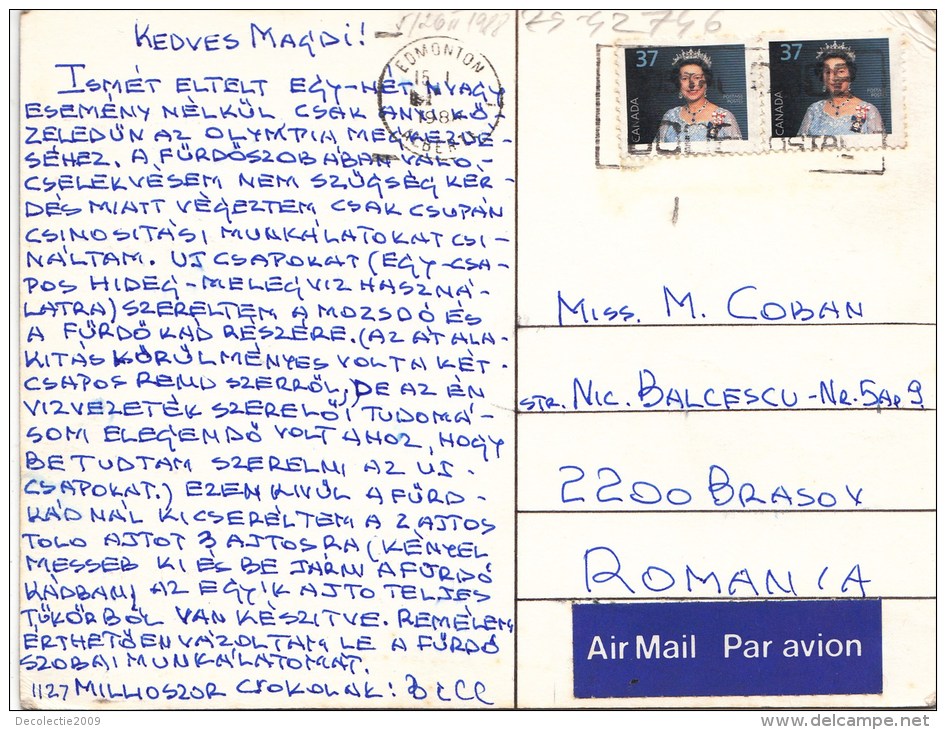 KEDVES MAGDI!
ISMÉT ELTELT EGY-HÉT NYAGY
ESEMÉNY NÈLKÜL, CSAK ANY. KÖ.
ZELEDÜN AZ OLYMPIA MEG KEZDÉ-
SÉHEZ. A FÜRDÖSZOBÁBAN VALO.-
CSELEKVÈSEM NEM SZÜGSÈG KÈR-
DÈS MIATT VÈGEZTEM CSAK CSUPÁN
CSINOSITÁSI MUNKÁLATOKAT CSI-
NÁLTAM. UJ CSAPOKAT (EGY-CSA-
POS HIDEG-MELEGVIZ HASZNÁ-
LATRA) SZERELTEM A MOZSDÓ ÉS
A FÜRDÖ KÁD RÈSZÈRE. (AZ ÁTALA-
KITÁS KÖRÜLMÉNYES VOLT A KÈT-
CSAPOS REND SZERRÖL, DE AZ ÈN
VIZVEZETÈK SZERELÖI TUDOMÁ-
SOM ELEGENDÖ VOLT AHOZ, HOGY
BE TUDTAM SZERELNI AZ UJ-
CSAPOKAT.) EZEN KIVÜL A FÜRD-
KÁDNÁL KICSERÉLTEM A 2 AJTOS
TOLO AJTOT 3 AJTOSRA (KÈNYEL
MESSEB KI ÉS BE JÁRNI A FÜRDÖ
KÁDBAN) AZ EGYIK AJTO TELJES
TÜKÖRBÖL VAN KÈSZITVE. REMÈLEM
ÈRTHETÖEN VÁZOLTAM LE A FÜRDÖ
SZOBAI MUNKÁLATOMAT.
1127 MILLIOSZOR CSOKOLAK:
5/26 II 1988
29-42746
EDMONTON
15 I
198
ALBERTA
37
CANADA
37
CANADA
MISS. M. COBAN
STR. NIC. BALCESCU-NR. 5 AP 9.
2200 BRASOV
ROMANIA
Air Mail Par avion
Decolectie2009
www.delcampe.net